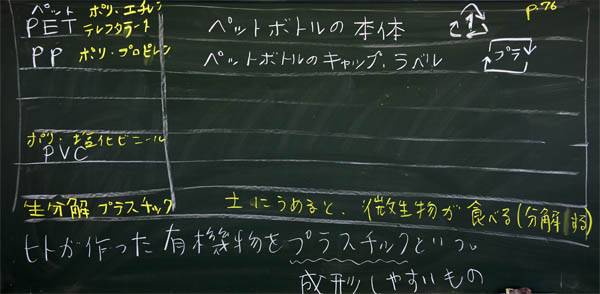 p.76
ペット ポリ・エチレン
PET テレフタラート ペットボトルの本体 1
PP ポリ・プロピレン ペットボトルのキャップ、ラベル プラ
ポリ・塩化ビニール
PVC
生分解プラスチック 土にうめると、微生物が食べる(分解する)
ヒトが作った有機物をプラスチックという。
成形しやすいもの